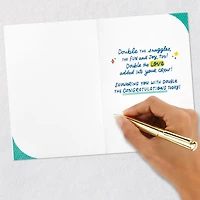 Double the snuggles,
the fun and joy, too!
Double the LOVE
added into your crew!
Showering you with double
the CONGRATULATIONS today!